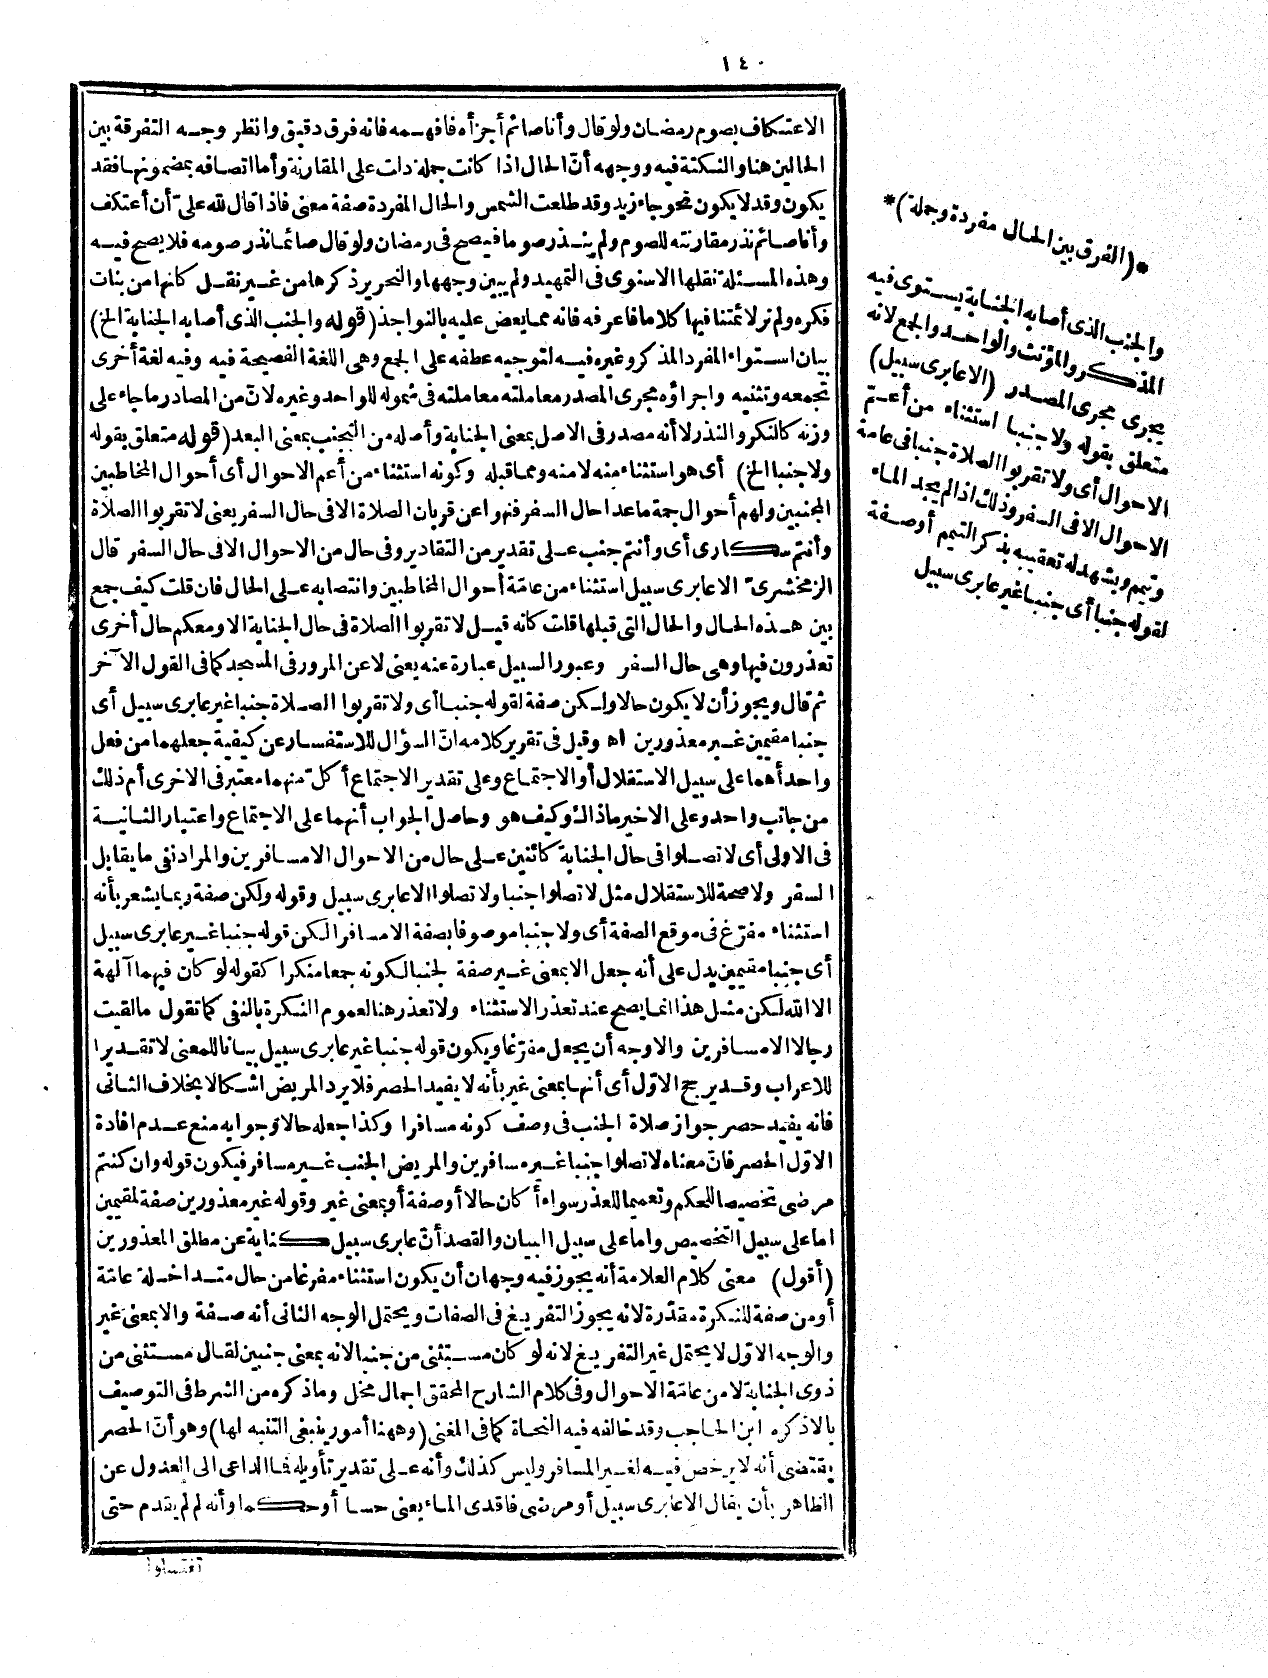 ١٤٠
الاعتكاف بصوم رمضان ولو قال وأنا صائم أجزأه فافهمه فانه فرق دقيق وانظر وجه التفرقة بين
الحالين هنا والنكتة فيه ووجهه أنّ الحال اذا كانت جملة دلت على المقارنة وأما اتصافه بمضمونها فقد
يكون وقد لا يكون نحو جاء زيد وقد طلعت الشمس والحال المفردة صفة معنى فاذا قال لله علىّ أن أعتكف
وأنا صائم نذر مقارنته للصوم ولم ينذر صوما فيصح فى رمضان ولو قال صائما نذر صومه فلا يصح فيه
وهذه المسئلة نقلها الاسنوى فى التمهيد ولم يبين وجهها والنحرير ذكرها من غير نقل كأنها من بنات
فكره ولم نر لائمتنا فيها كلاما فاعرفه فانه مما يعض عليه بالنواجذ (قوله والجنب الذى أصابه الجنابة الخ)
بيان استواء المفرد المذكر وغيره فيه لتوجيه عطفه على الجمع وهى اللغة الفصيحة فيه وفيه لغة أخرى
تجمعه وتثنيه واجراؤه مجرى المصدر معاملته معاملته فى شموله للواحد وغيره لانّ من المصادر ما جاء على
وزنه كالنكر والنذر لا أنه مصدر فى الاصل بمعنى الجنابة وأصله من التجنب بمعنى البعد (قوله متعلق بقوله
ولا جنبا الخ) أى هو استثناء منه لا منه ومما قبله وكونه استثناء من أعم الاحوال أى أحوال المخاطبين
المجنبين ولهم أحوال جمة ما عدا حال السفر فنهوا عن قربان الصلاة الا فى حال السفر يعنى لا تقربوا الصلاة
وأنتم سكارى أى وأنتم جنب على تقدير من التقادير وفى حال من الاحوال الا فى حال السفر قال
الزمخشرىّ الا عابرى سبيل استثناء من عامّة أحوال المخاطبين وانتصابه على الحال فان قلت كيف جمع
بين هذه الحال والحال التى قبلها قلت كأنه قيل لا تقربوا الصلاة فى حال الجنابة الا ومعكم حال أخرى
تعذرون فيها وهى حال السفر وعبور السبيل عبارة عنه يعنى لا عن المرور فى المسجد كما فى القول الآخر
ثم قال ويجوز أن لا يكون حالا ولكن صفة لقوله جنبا أى ولا تقربوا الصلاة جنبا غير عابرى سبيل أى
جنبا مقيمين غير معذورين اه وقيل فى تقرير كلامه انّ السؤال للاستفسار عن كيفية جعلهما من فعل
واحد أهما على سبيل الاستقلال أو الاجتماع وعلى تقدير الاجتماع أكلّ منهما معتبر فى الاخرى أم ذلك
من جانب واحد وعلى الاخير ماذاك وكيف هو وحاصل الجواب أنهما على الاجتماع واعتبار الثانية
فى الاولى أى لا تصلوا فى حال الجنابة كائنين على حال من الاحوال الا مسافرين والمراد نفى ما يقابل
السفر ولا صحة للاستقلال مثل لا تصلوا جنبا ولا تصلوا الا عابرى سبيل وقوله ولكن صفة ربما يشعر بأنه
استثناء مفرّغ فى موقع الصفة أى ولا جنبا موصوفا بصفة الا مسافرا لكن قوله جنبا غير عابرى سبيل
أى جنبا مقيمين يدل على أنه جعل الا بمعنى غير صفة لجنبا لكونه جمعا منكرا كقوله لو كان فيهما آلهة
الا الله لكن مثل هذا انما يصح عند تعذر الاستثناء ولا تعذر هنا لعموم النكرة بالنفى كما تقول ما لقيت
رجالا الا مسافرين والاوجه أن يجعل مفرّغا ويكون قوله جنبا غير عابرى سبيل بيانا للمعنى لا تقديرا
للاعراب وقد يرجح الاوّل أى أنها بمعنى غير بأنه لا يفيد الحصر فلا يرد المريض اشكالا بخلاف الثانى
فانه يفيد حصر جواز صلاة الجنب فى وصف كونه مسافرا وكذا جعله حالا وجوابه منع عدم افادة
الاوّل الحصر فانّ معناه لا تصلوا جنبا غير مسافرين والمريض الجنب غير مسافر فيكون قوله وان كنتم
مرضى تخصيصا للحكم وتعميما للعذر سواء أكان حالا أو صفة أو بمعنى غير وقوله غير معذورين صفة لمقيمين
اما على سبيل التخصيص واما على سبيل البيان والقصد أنّ عابرى سبيل كناية عن مطلق المعذورين
(أقول) معنى كلام العلامة أنه يجوز فيه وجهان أن يكون استثناء مفرغا من حال متداخلة عامّة
أو من صفة للنكرة مقدّرة لانه يجوز التفريغ فى الصفات ويحتمل الوجه الثانى أنه صفة والا بمعنى غير
والوجه الاوّل لا يحتمل غير التفريغ لانه لو كان مستثنى من جنبا لانه بمعنى جنبين لقال مستثنى من
ذوى الجنابة لا من عامّة الاحوال وفى كلام الشارح المحقق اجمال مخل وما ذكره من الشرط فى التوصيف
بالا ذكره ابن الحاجب وقد خالفه فيه النحاة كما فى المغنى (وههنا أمور ينبغى التنبه لها) وهو أنّ الحصر
يقتضى أنه لا يرخص فيه لغير المسافر وليس كذلك وأنه على تقدير تأويله فما الداعى الى العدول عن
الظاهر بأن يقال الا عابرى سبيل أو مرضى فاقدى الماء يعنى حسا أو حكما وأنه لم لم يقدم حتى
تغتسلوا
*(الفرق بين الحال مفردة وجملة)*
والجنب الذى أصابه الجنابة يستوى فيه
المذكر والمؤنث والواحد والجمع لانه
يجرى مجرى المصدر (الا عابرى سبيل)
متعلق بقوله ولا جنبا استثناء من أعمّ
الاحوال أى ولا تقربوا الصلاة جنبا فى عامة
الاحوال الا فى السفر وذلك اذا لم يجد الماء
وتيمم ويشهد له تعقيبه بذكر التيمم أو صفة
لقوله جنبا أى جنبا غير عابرى سبيل